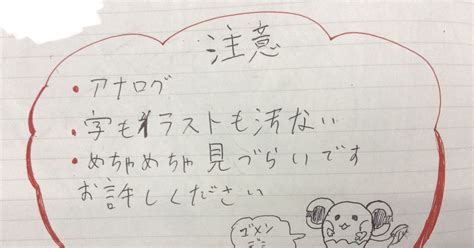 注意
・アナログ
・字もイラストも汚ない
・めちゃめちゃ見づらいです
お許しください
ゴメン
デス